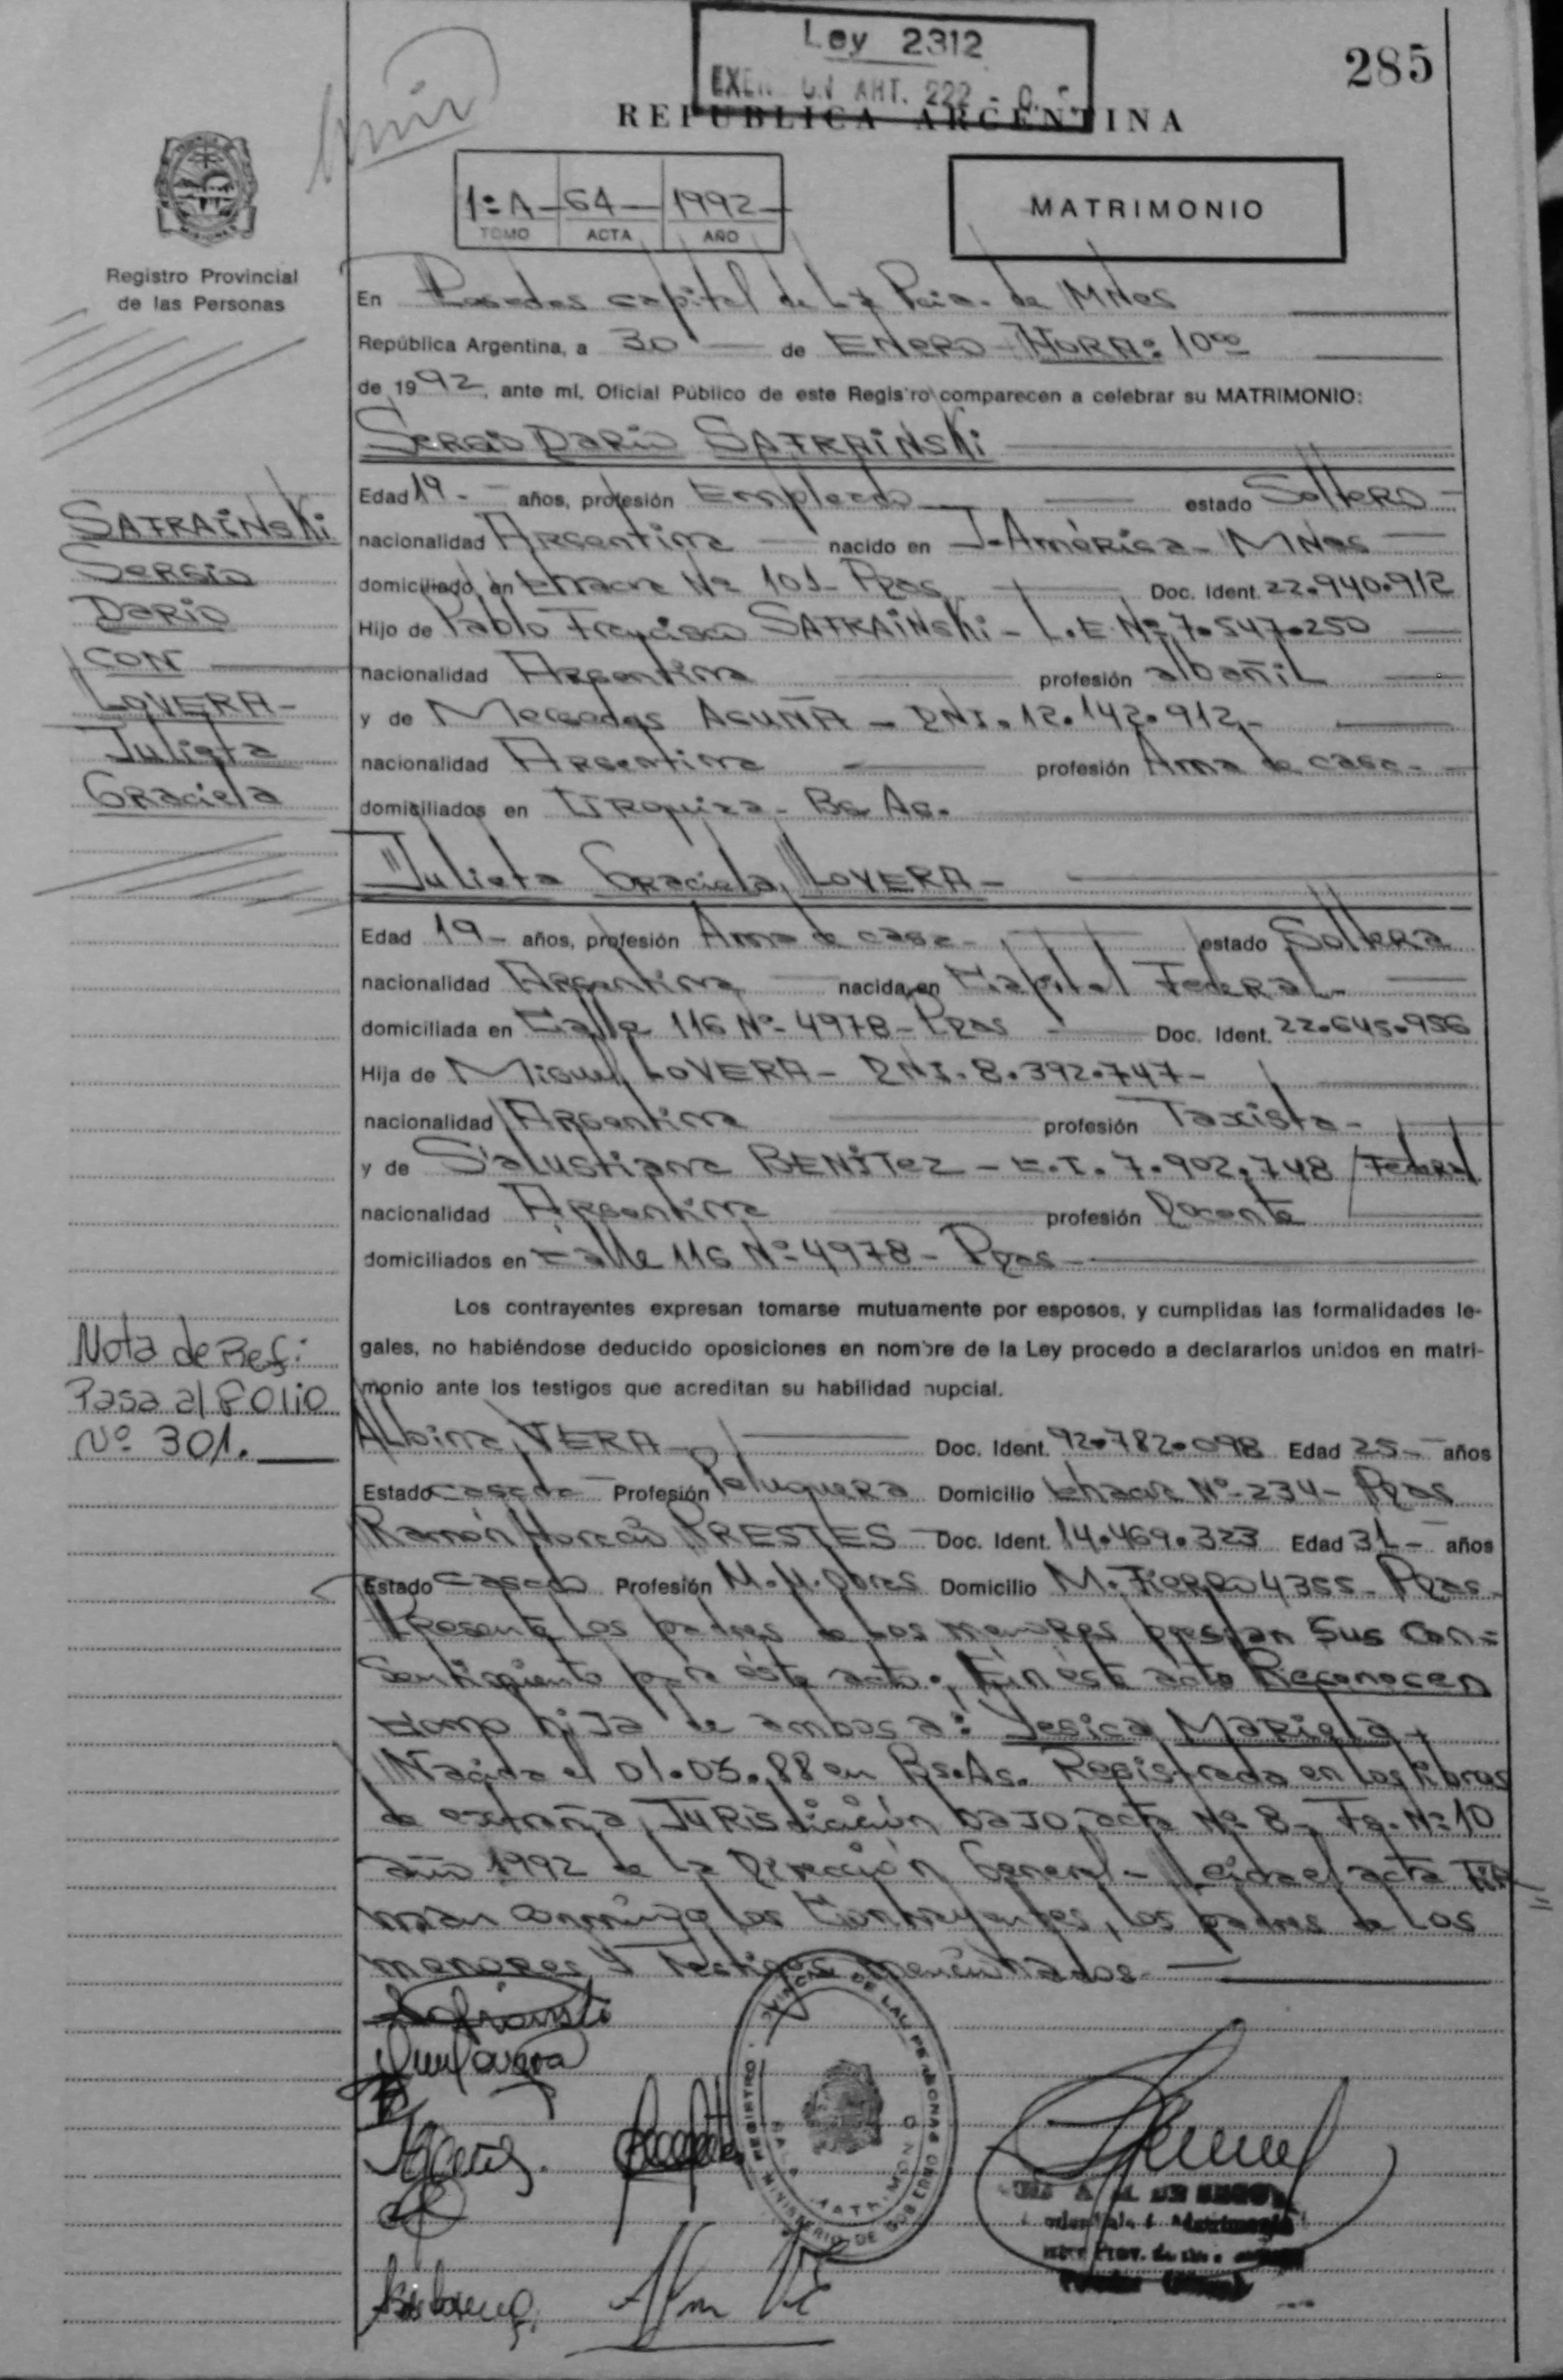 Ley 2312
ART. 222
285
REPUBLICA ARGENTINA
1º A - 64 - 1992 -
TOMO ACTA AÑO
MATRIMONIO
Registro Provincial
de las Personas
En Posadas capital de La Pcia. de MNes
República Argentina, a 30 de ENERO HORA: 10:00
de 1992, ante mí, Oficial Público de este Registro comparecen a celebrar su MATRIMONIO:
Sergio Dario SAFRAiNSKi
SAFRAiNSKi
Sergio
Dario
CON
LOVERA -
Julieta
Graciela
Edad 19 - años, profesión Empleado estado Soltero -
nacionalidad Argentina nacido en J. América - MNes
domiciliado en Nº 101 - Pdas Doc. Ident. 22.940.912
Hijo de Pablo Francisco SAFRAiNSKi - L.E Nº 7.547.250
nacionalidad Argentina profesión albañil
y de Mercedes ACUÑA - DNI. 12.142.912 -
nacionalidad Argentina profesión Ama de casa -
domiciliados en Urquiza - Bs As.
Julieta Graciela LOVERA -
Edad 19 - años, profesión Ama de casa - estado Soltera
nacionalidad Argentina nacida en Capital Federal -
domiciliada en Calle 116 Nº 4978 - Pdas Doc. Ident. 22.645.956
Hija de Miguel LOVERA - DNI. 8.392.747 -
nacionalidad Argentina profesión Taxista -
y de Salustiana BENiTez - C.I. 7.902.748 Federal
nacionalidad Argentina profesión Docente
domiciliados en Calle 116 Nº 4978 - Pdas -
Los contrayentes expresan tomarse mutuamente por esposos, y cumplidas las formalidades le-
gales, no habiéndose deducido oposiciones en nombre de la Ley procedo a declararlos unidos en matri-
monio ante los testigos que acreditan su habilidad nupcial.
Nota de Ref:
Pasa al FOLIO
Nº 301.
Albina VERA - Doc. Ident. 92.782.098 Edad 25 - años
Estado casada Profesión Peluquera Domicilio Nº 234 - Pdas
Ramón Horacio PRESTES - Doc. Ident. 14.469.323 Edad 31 - años
Estado casado Profesión M.M. Obras Domicilio M. Fierro 4355 - Pdas -
Presente los padres de los menores prestan sus con=
sentimiento para éste acto; En éste acto Reconocen
como hija de ambos a: Yesica Mariela,
Nacida el 01.05.88 en Bs.As. Registrada en los libros
de extraña Jurisdicción bajo acta Nº 8 - Fº Nº 10
año 1992 de la Dirección General - Leida el acta Fir
man conmigo los Contrayentes, los padres de los
menores y Testigos mencionados -
REGISTRO PROVINCIAL DE LAS PERSONAS
MINISTERIO DE GOBIERNO
MATRIMONIO